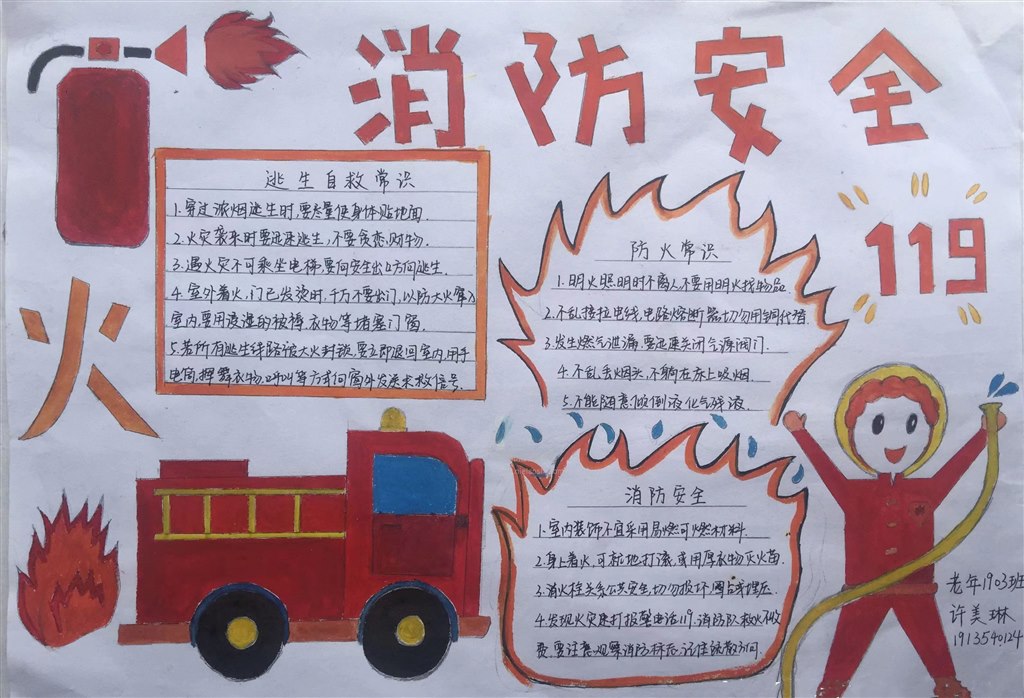 消防安全
119
火
逃生自救常识
1.穿过浓烟逃生时,要尽量使身体贴地面.
2.火灾袭来时要迅速逃生,不要贪恋财物.
3.遇火灾不可乘坐电梯要向安全出口方向逃生.
4.室外着火,门已发烫时,千万不要出门,以防大火窜入
室内,要用浸湿的被褥、衣物等堵塞门窗.
5.若所有逃生线路被大火封锁,要立即退回室内,用手
电筒,挥舞衣物、呼叫等方式向窗外发送求救信号.
防火常识
1.明火照明时不离人,不要用明火找物品
2.不乱接拉电线,电路熔断器切勿用铜代替.
3.发生燃气泄漏,要迅速关闭气源阀门.
4.不乱丢烟头,不躺在床上吸烟.
5.不能随意做倒液化气残液.
消防安全
1.室内装饰不宜采用易燃可燃材料.
2.身上着火,可就地打滚,或用厚衣物灭火苗.
3.消火栓关系公共安全,切勿损坏、圈占或埋压.
4.发现火灾速打报警电话119,消防队救火不收
费.要注意观察消防标志,记住疏散方向.
老年1903班
许美琳
1913540124